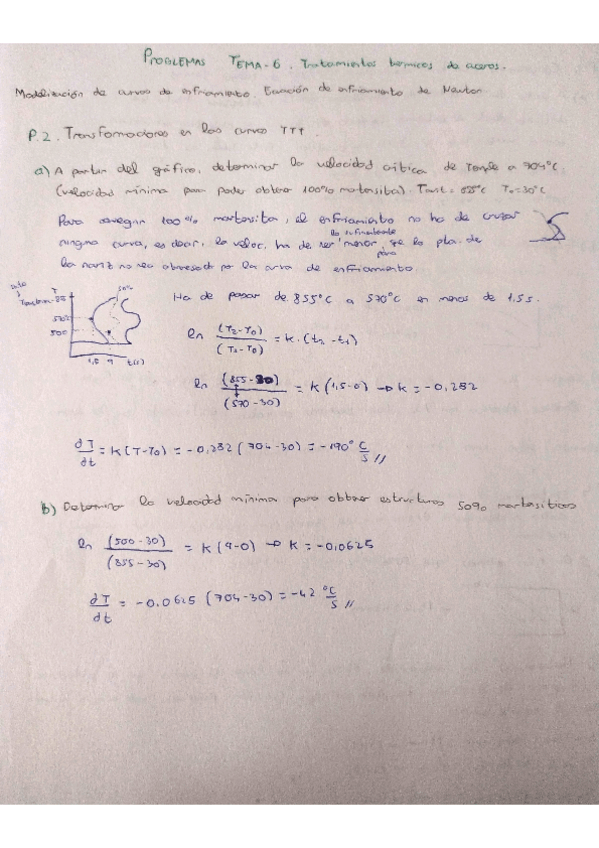 PROBLEMAS TEMA-6. Tratamientos térmicos de aceros.
Modelización de curvas de enfriamiento. Ecuación de enfriamiento de Newton
P.2. Transformaciones en las curvas TTT.
a) A partir del gráfico, determinar la velocidad crítica de Temple a 704°C.
(velocidad mínima para poder obtener 100% martensita). Taust = 855°C T0 = 30°C
Para conseguir 100% martensita, el enfriamiento no ha de cruzar
lo suficientemente
ninguna curva, es decir, la veloc. ha de ser menor, para de
la nariz no sea atravesada por la curva de enfriamiento.
T
50%
570°C
500
1,5 9 t(s)
Ha de pasar de 855°C a 570°C en menos de 1.5 s.
ln (T2-T0)/(T1-T0) = K·(t2-t1)
ln (855-30)/(570-30) = K(1,5-0) → K = -0,282
dT/dt = K(T-T0) = -0,282(704-30) = -190 °C/s //
b) Determinar la velocidad mínima para obtener estructuras 50% martensíticas
ln (500-30)/(855-30) = K(9-0) → K = -0,0625
dT/dt = -0.0625(704-30) = -42 °C/s //